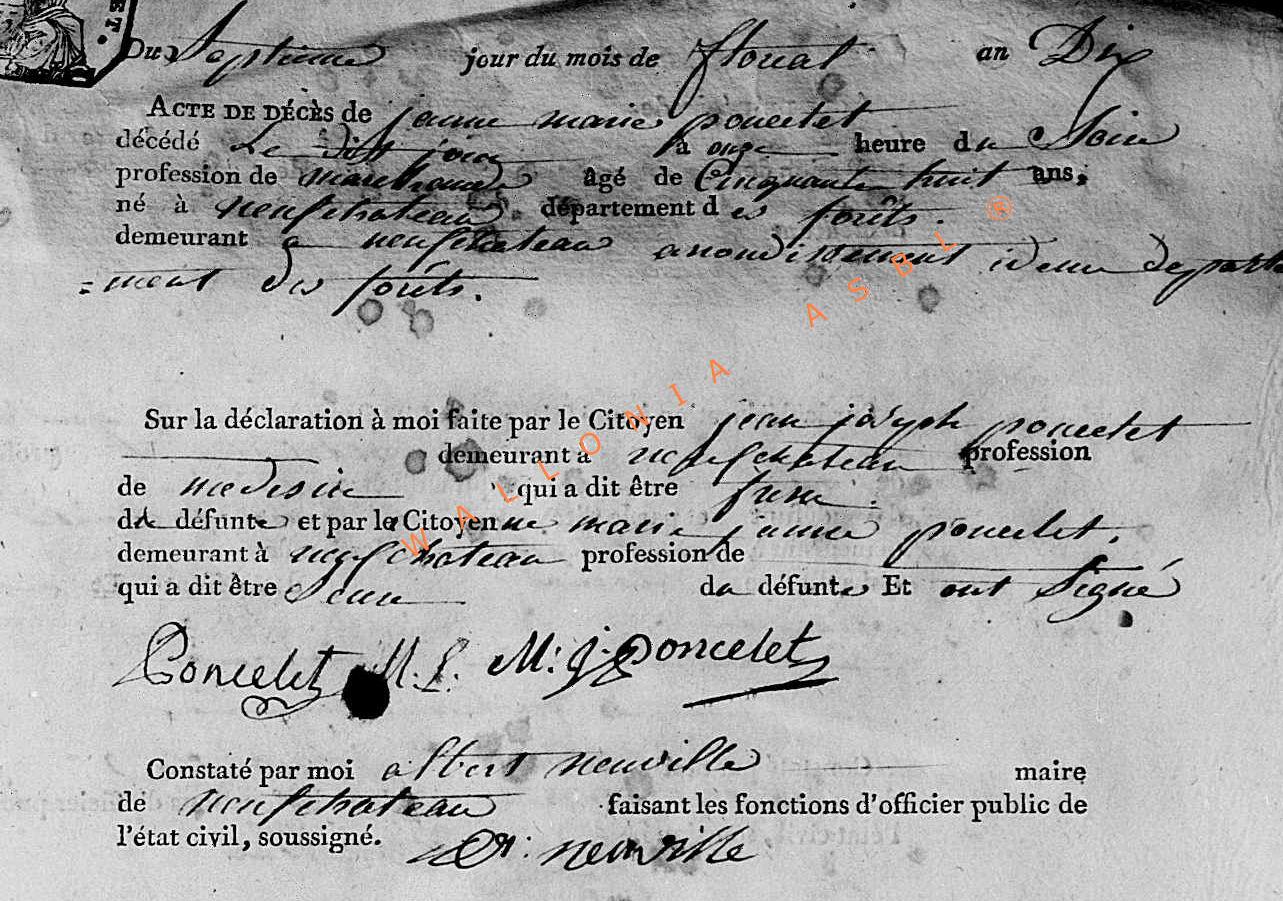 ST.
Du Septieme jour du mois de floreal an Dix
ACTE DE DÉCÈS de jeanne marie poncelet
décédé Le dit jour à onze heure du Soire
profession de marchande âgé de Cinquante huit ans,
né à neufchateau département des forêts.
demeurant a neufchateau arrondissement idem departe
=ment des forêts.
Sur la déclaration à moi faite par le Citoyen jean joseph poncelet
demeurant à neufchateau profession
de medesin qui a dit être frere
de la défunte et par la Citoyenne marie jeanne poncelet,
demeurant à neufchateau profession de
qui a dit être Seur da défunte Et ont Signé
Poncelet M. L. M: j: poncelet
Constaté par moi albert neuville maire
de neufchateau faisant les fonctions d'officier public de
l'état civil, soussigné. neuville
WALLONIA ASBL ®